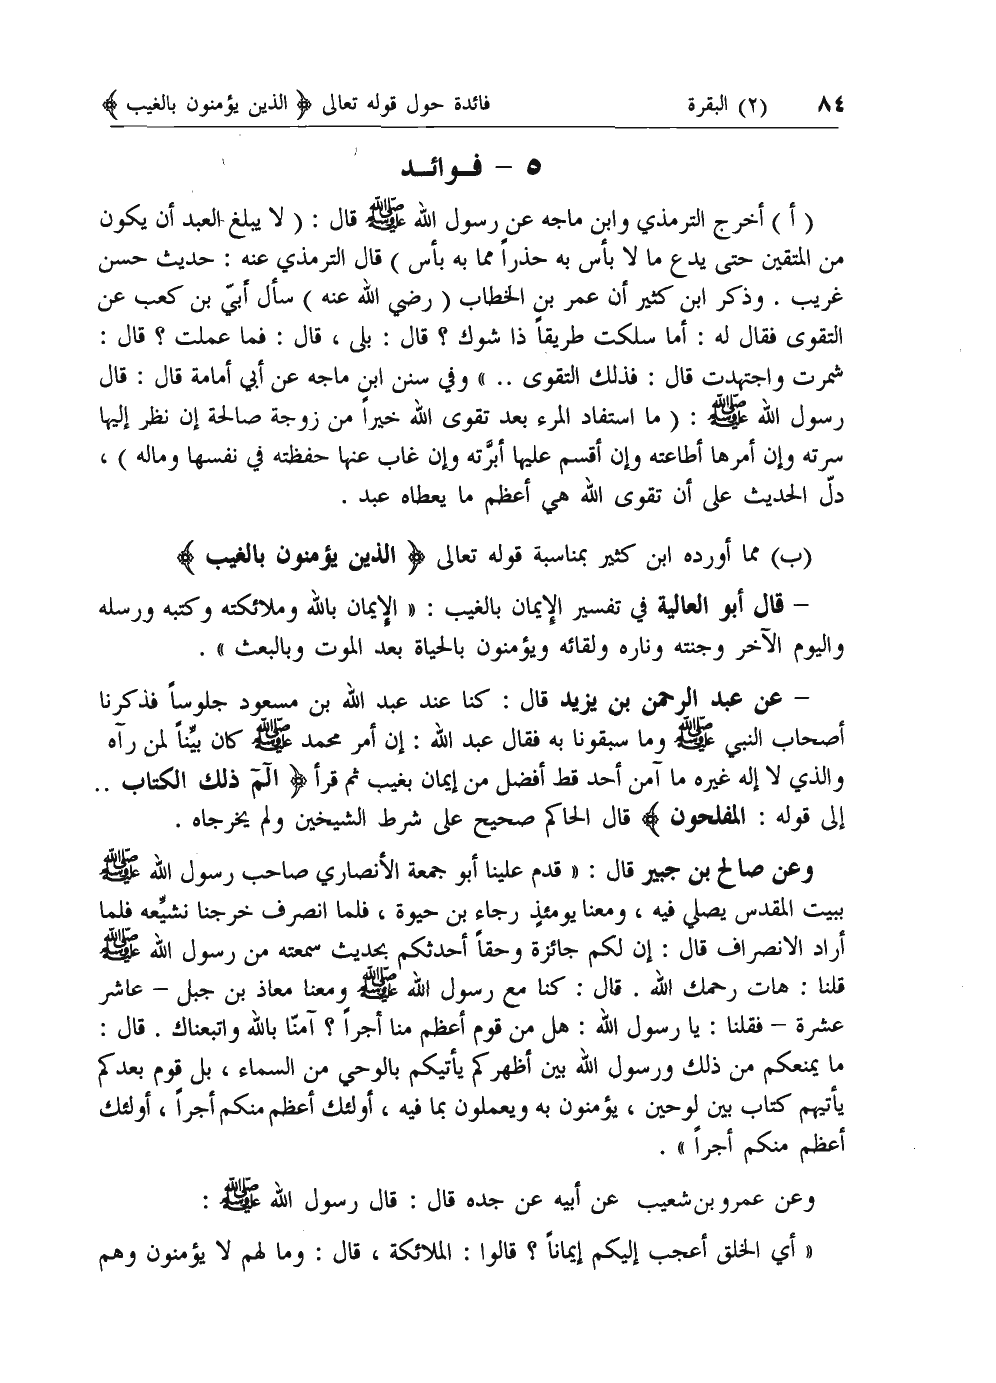 ٨٤ (٢) البقرة فائدة حول قوله تعالى ﴿ الذين يؤمنون بالغيب ﴾
٥ – فــوائــد
( أ ) أخرج الترمذي وابن ماجه عن رسول الله ﷺ قال : ( لا يبلغ العبد أن يكون
من المتقين حتى يدع ما لا بأس به حذراً مما به بأس ) قال الترمذي عنه : حديث حسن
غريب . وذكر ابن كثير أن عمر بن الخطاب ( رضي الله عنه ) سأل أبيّ بن كعب عن
التقوى فقال له : أما سلكت طريقاً ذا شوك ؟ قال : بلى ، قال : فما عملت ؟ قال :
شمرت واجتهدت قال : فذلك التقوى .. » وفي سنن ابن ماجه عن أبي أمامة قال : قال
رسول الله ﷺ : ( ما استفاد المرء بعد تقوى الله خيراً من زوجة صالحة إن نظر إليها
سرته وإن أمرها أطاعته وإن أقسم عليها أبرَّته وإن غاب عنها حفظته في نفسها وماله ) ،
دلّ الحديث على أن تقوى الله هي أعظم ما يعطاه عبد .
(ب) مما أورده ابن كثير بمناسبة قوله تعالى ﴿ الذين يؤمنون بالغيب ﴾
– قال أبو العالية في تفسير الإيمان بالغيب : « الإيمان بالله وملائكته وكتبه ورسله
واليوم الآخر وجنته وناره ولقائه ويؤمنون بالحياة بعد الموت وبالبعث » .
– عن عبد الرحمن بن يزيد قال : كنا عند عبد الله بن مسعود جلوساً فذكرنا
أصحاب النبي ﷺ وما سبقونا به فقال عبد الله : إن أمر محمد ﷺ كان بيِّناً لمن رآه
والذي لا إله غيره ما آمن أحد قط أفضل من إيمان بغيب ثم قرأ ﴿ الٓمٓ ذلك الكتاب ..
إلى قوله : المفلحون ﴾ قال الحاكم صحيح على شرط الشيخين ولم يخرجاه .
وعن صالح بن جبير قال : « قدم علينا أبو جمعة الأنصاري صاحب رسول الله ﷺ
ببيت المقدس يصلي فيه ، ومعنا يومئذٍ رجاء بن حيوة ، فلما انصرف خرجنا نشيِّعه فلما
أراد الانصراف قال : إن لكم جائزة وحقاً أحدثكم بحديث سمعته من رسول الله ﷺ
قلنا : هات رحمك الله . قال : كنا مع رسول الله ﷺ ومعنا معاذ بن جبل – عاشر
عشرة – فقلنا : يا رسول الله : هل من قوم أعظم منا أجراً ؟ آمنّا بالله واتبعناك . قال :
ما يمنعكم من ذلك ورسول الله بين أظهركم يأتيكم بالوحي من السماء ، بل قوم بعدكم
يأتيهم كتاب بين لوحين ، يؤمنون به ويعملون بما فيه ، أولئك أعظم منكم أجراً ، أولئك
أعظم منكم أجراً » .
وعن عمرو بن شعيب عن أبيه عن جده قال : قال رسول الله ﷺ :
« أي الخلق أعجب إليكم إيماناً ؟ قالوا : الملائكة ، قال : وما لهم لا يؤمنون وهم